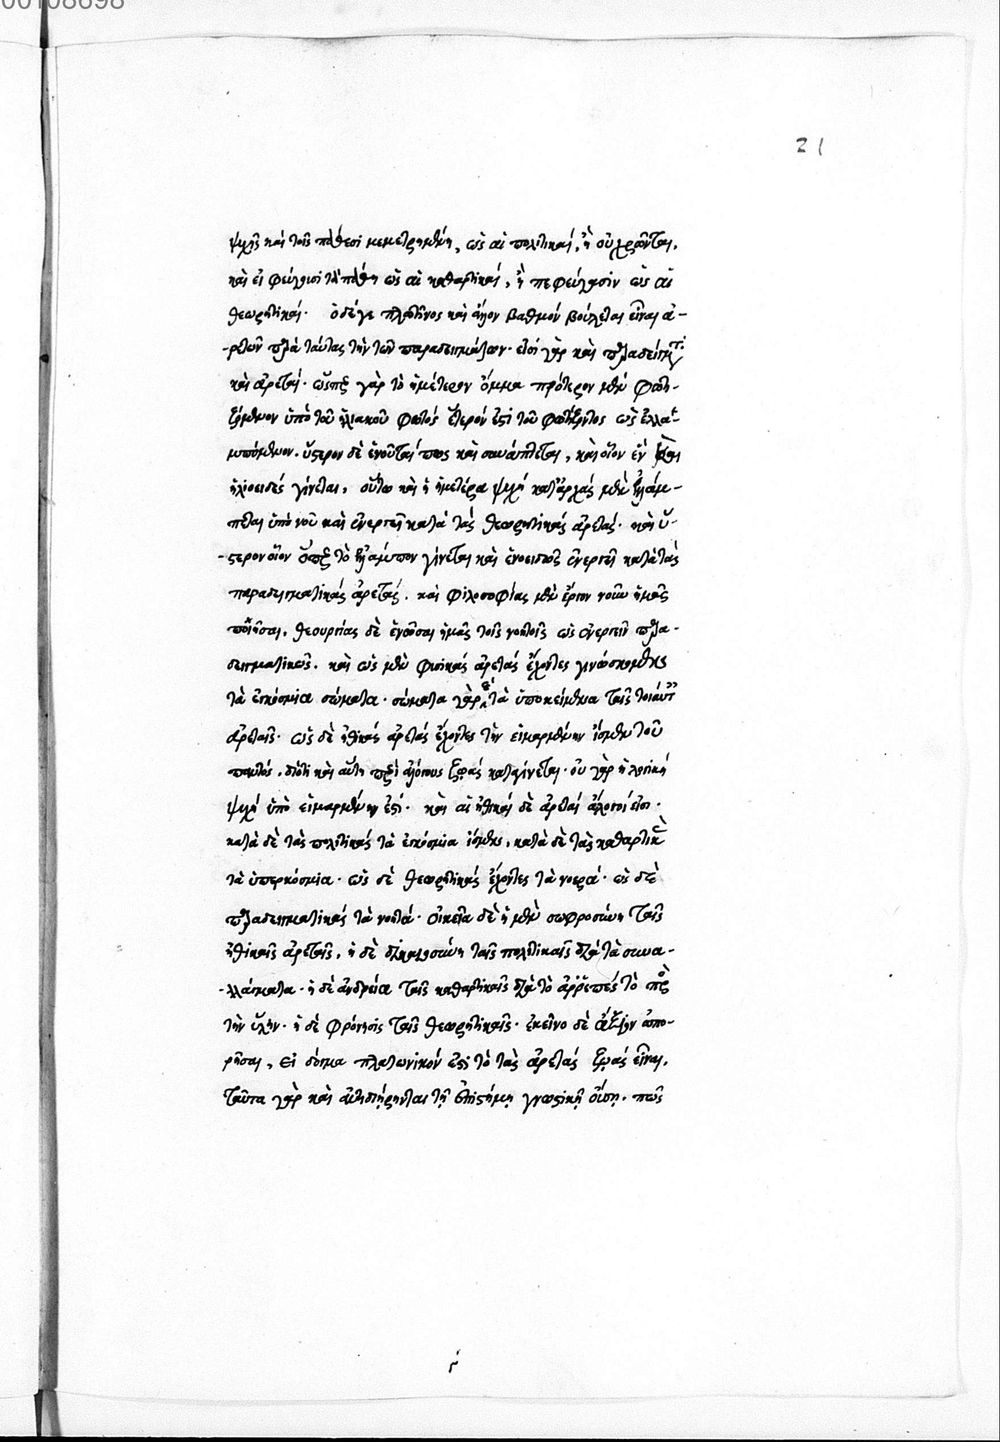 00108698
21
ψυχῆς καὶ τοῖς πάθεσι μεμετρημένη, ὡς αἱ πολιτικαί, ἢ οὐ χρῶνται.
καὶ εἰ φεύγουσι τὰ πάθη ὡς αἱ καθαρτικαί, ἢ πεφεύγασιν ὡς αἱ
θεωρητικαί. ὁ δέ γε πλωτῖνος καὶ ἄλλον βαθμὸν βούλεται εἶναι ἀ-
-ρετῶν παρὰ ταύτας τὴν τῶν παραδειγμάτων· εἰσὶ γὰρ καὶ παραδειγματικαὶ
καὶ ἀρεταί. ὥσπερ γὰρ τὸ ἡμέτερον ὄμμα πρότερον μὲν φωτι-
ζόμενον ὑπὸ τοῦ ἡλιακοῦ φωτὸς ἕτερόν ἐστι τοῦ φωτίζοντος ὡς ἐλλα-
μπόμενον. ὕστερον δὲ ἑνοῦταί πως καὶ συνάπτεται, καὶ οἷον ἓν καὶ
ἡλιοειδὲς γίνεται, οὕτω καὶ ἡ ἡμετέρα ψυχὴ κατ' ἀρχὰς μὲν ἐλλάμ-
πεται ὑπὸ νοῦ καὶ ἐνεργεῖ κατὰ τὰς θεωρητικὰς ἀρετάς. καὶ ὕ-
-στερον οἷον ὅπερ τὸ ἐλλάμπον γίνεται καὶ ἑνοειδῶς ἐνεργεῖ κατὰ τὰς
παραδειγματικὰς ἀρετάς. καὶ φιλοσοφίας μὲν ἔργον νοῦν ἡμᾶς
ποιῆσαι. θεουργίας δὲ ἑνῶσαι ἡμᾶς τοῖς νοητοῖς ὡς ἐνεργεῖν παρα-
δειγματικῶς. καὶ ὡς μὲν φυσικὰς ἀρετὰς ἔχοντες γινώσκομεν
τὰ ἐγκόσμια σώματα· σώματα γὰρ τὰ ὑποκείμενα ταῖς τοιαύταις
ἀρεταῖς. ὡς δὲ ἠθικὰς ἀρετὰς ἔχοντες τὴν εἱμαρμένην ἴσμεν τοῦ
παντός, διότι καὶ αὕτη περὶ ἀλόγους ζωὰς καταγίνεται. οὐ γὰρ ἡ λογικὴ
ψυχὴ ὑπὸ εἱμαρμένην ἐστί. καὶ αἱ ἠθικαὶ δὲ ἀρεταὶ ἄλογοί εἰσι.
κατὰ δὲ τὰς πολιτικὰς τὰ ἐγκόσμια ἴσμεν, κατὰ δὲ τὰς καθαρτικὰς
τὰ ὑπερκόσμια. ὡς δὲ θεωρητικὰς ἔχοντες τὰ νοερά. ὡς δὲ
παραδειγματικὰς τὰ νοητά. οἰκεία δὲ ἡ μὲν σωφροσύνη ταῖς
ἠθικαῖς ἀρεταῖς, ἡ δὲ δικαιοσύνη ταῖς πολιτικαῖς διὰ τὰ συνα-
-λλάγματα. ἡ δὲ ἀνδρεία ταῖς καθαρτικαῖς διὰ τὸ ἀρρεπὲς τὸ πρὸς
τὴν ὕλην. ἡ δὲ φρόνησις ταῖς θεωρητικαῖς. ἐκεῖνο δὲ ἄξιον ἀπο-
ρῆσαι, εἰ δόγμα πλατωνικόν ἐστι τὸ τὰς ἀρετὰς ζωὰς εἶναι.
ταῦτα γὰρ καὶ ἀντιδιῄρηνται τῇ ἐπιστήμῃ γνωστικῇ οὔσῃ. πῶς